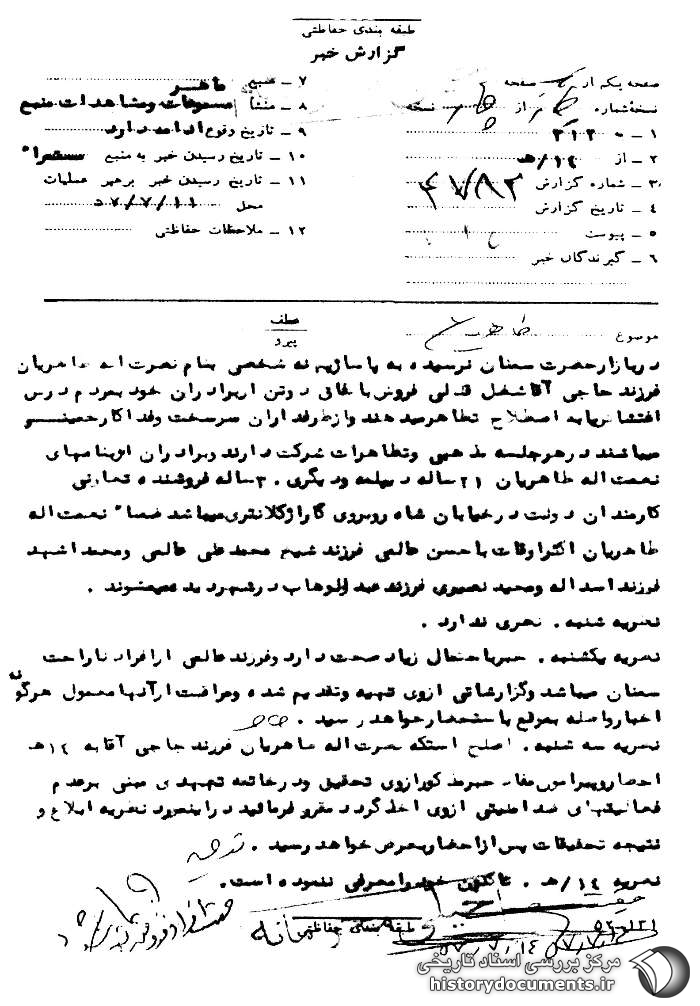 طبقه بندی حفاظتی
گزارش خبر
صفحه یکم از صفحه
نسخهٔ شماره از نسخه
۱ ـ ۳۱۲
۲ ـ از ۱۲/هـ
۳ ـ شماره گزارش
۴ ـ تاریخ گزارش
۵ ـ پیوست
۶ ـ گیرندگان خبر
۷ ـ منبع ماهر
۸ ـ منشأ مسموعات و مشاهدات منبع
۹ ـ تاریخ وقوع ادامه دارد
۱۰ ـ تاریخ رسیدن خبر به منبع مستمراً
۱۱ ـ تاریخ رسیدن خبر برهبر عملیات
محل ۵۷/۷/۱۱
۱۲ ـ ملاحظات حفاظتی
موضوع
عطف
پیرو
در بازار حضرت سمنان نرسیده به پاساژ شخصی بنام نصرت اله طاهریان
فرزند حاجی آقا شغل فروش باتفاق دوتن از برادران خود بمردم درس
اغتشاش یا به اصطلاح تظاهر میدهند و از طرفداران سرسخت و فداکار خمینی
میباشند در هر جلسه مذهبی و تظاهرات شرکت دارند و برادران او بنامهای
نعمت اله طاهریان ۲۱ ساله دیپلمه و دیگری ۳۰ ساله فروشنده تعاونی
کارمندان دولت در خیابان شاه روبروی گاراژ کلانتری میباشد ضمناً نعمت اله
طاهریان اکثر اوقات با حسن عالمی فرزند شیخ محمدعلی عالمی و محمد اشهد
فرزند اسداله و مجید نصیری فرزند عبدالوهاب در شهر دیده میشوند .
نظریه شنبه . نظری ندارد .
نظریه یکشنبه . خبر باحتمال زیاد صحت دارد و فرزند عالمی از افراد ناراحت
سمنان میباشد و گزارشاتی از وی تهیه و تقدیم شده و مراقبت از آنها معمول هرگونه
اخبار واصله بموقع باستحضار خواهد رسید .
نظریه سه شنبه . اصلح استکه نصرت اله طاهریان فرزند حاجی آقا به ۱۲هـ
احضار و پیرامون مفاد خبر مذکور از وی تحقیق و در خاتمه تعهدی مبنی بر عدم
فعالیتهای ضد امنیتی از وی اخذ گردد مقرر فرمائید در اینمورد نظریه ابلاغ و
نتیجه تحقیقات پس از احضار بعرض خواهد رسید . توحید
نظریه ۱۲/هـ . تاکنون خود را معرفی ننموده است .
طبقه بندی حفاظتی
مرکز بررسی اسناد تاریخی
historydocuments.ir